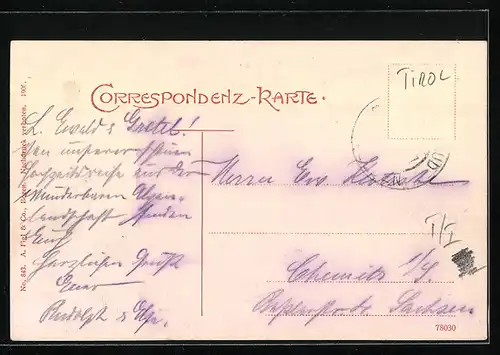 CORRESPONDENZ-KARTE.
TIROL
L. Ewald & Gretel!
Von unserer schönen
Hochzeitsreise aus der
wunderbaren Alpen-
landschaft senden
Euch
herzlichen Gruß
Euer
Rudolf &
Herrn Ew.
T/I
Chemnitz i/S.
Sachsen
78030
No. 843. A. Figl & Co., Nachdruck verboten. 1907.